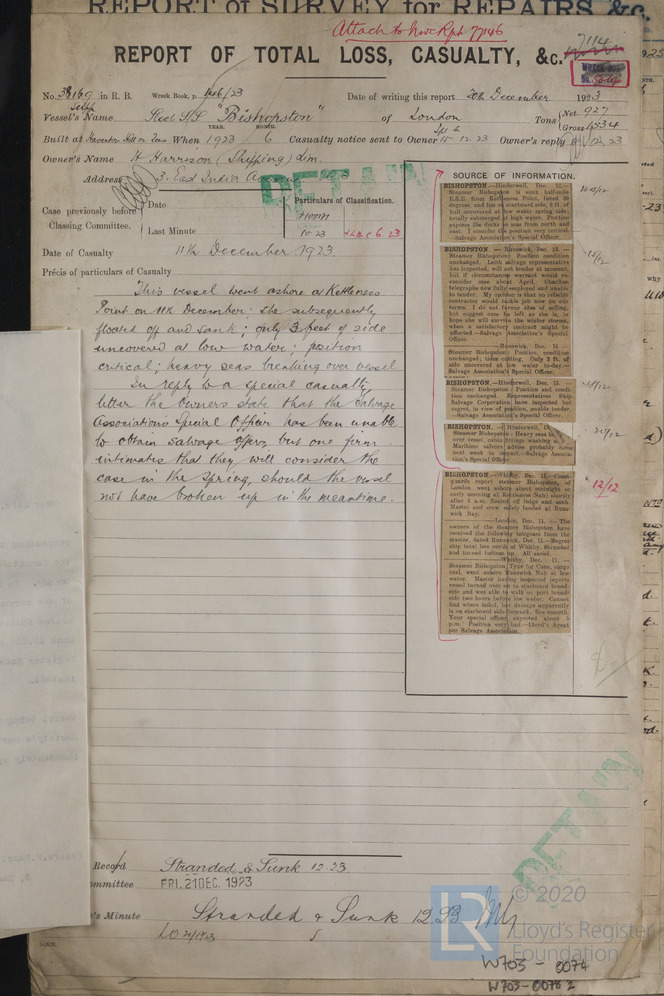 REPORT OF SURVEY for REPAIRS, &c.
Attach to Nwc Rpt 77146
7114
REPORT OF TOTAL LOSS, CASUALTY, &c.
WRECK REPT
No. 38169 in R. B. Wreck Book, p. 646/23 Date of writing this report 20th December 1923
Vessel's Name Steel SS "Bishopston" of London Tons { Net 927
Gross 1634
YEAR. MONTH.
Built at Haverton Hill on Tees When 1923 6 Casualty notice sent to Owner 15 12 23 Owner's reply 12 23
Owner's Name H Harrison (Shipping) Lim.
Address 3. East India Avenue EC3
RETAIN
Case previously before
Classing Committee.
Date
Last Minute
Particulars of Classification.
+100A1
10.23
+LMC 6.23
Date of Casualty 11th December 1923
Précis of particulars of Casualty
This vessel went ashore a Kettleness
Point on 11th December; she subsequently
floated off and sank; only 3 feet of side
uncovered at low water; position
critical; heavy seas breaking over vessel
In reply to a special casualty
letter the Owners state that the Salvage
Associations Special Officer has been unable
to obtain salvage offers, but one firm
intimates that they will consider the
case in the Spring, should the vessel
not have broken up in the meantime.
SOURCE OF INFORMATION.
BISHOPSTON.—Hinderwell, Dec. 12.—
Steamer Bishopston is sunk half-mile
E.S.E. from Kettleness Point, listed 80
degrees, and lies on starboard side, 6 ft. of
hull uncovered at low water spring tide,
totally submerged at high water. Position
exposes the decks to seas from north and
east. I consider the position very critical.
—Salvage Association's Special Officer.
BISHOPSTON.—Runswick, Dec. 13.—
Steamer Bishopston: Position condition
unchanged. Leith salvage representative
has inspected, will not tender at moment,
but if circumstances warrant would re-
consider case about April. Charlton
telegraphs now fully employed and unable
to tender. My opinion is that no reliable
contractor would tackle job now on our
terms. I do not favour idea of selling,
but suggest case be left as she is, in
hope she will survive the winter storms,
when a satisfactory contract might be
affected.—Salvage Association's Special
Officer.
Runswick, Dec. 14.—
Steamer Bishopston: Position, condition
unchanged; tides cutting. Only 3 ft. of
side uncovered at low water to-day.—
Salvage Association's Special Officer.
BISHOPSTON.—Hinderwell, Dec. 15.—
Steamer Bishopston: Position and condi-
tion unchanged. Representatives Ship
Salvage Corporation have inspected but
regret, in view of position, unable tender.
—Salvage Association's Special Officer.
BISHOPSTON.—Hinderwell,
Steamer Bishopston: Heavy seas
over vessel, cabin fittings washing
Maritime salvors advise probably come
next week to inspect.—Salvage Associa-
tion's Special Officer.
20/12
BISHOPSTON.—Whitby, Dec. 11.—Coast-
guards report steamer Bishopston, of
London went ashore about midnight or
early morning at Kettleness Nab; shortly
after 8 a.m. floated off ledge and sank.
Master and crew safely landed at Runs-
wick Bay.
London, Dec. 11.—The
owners of the steamer Bishopston have
received the following telegram from the
master, dated Runswick, Dec. 11.—Regret
ship total loss north of Whitby. Stranded
and turned bottom up. All saved.
Whitby, Dec. 11.—
Steamer Bishopston, Tyne for Caen, cargo
coal, went ashore Runswick Nab at low
water. Master having inspected reports
vessel turned over on to starboard broad-
side and was able to walk on port broad-
side two hours before low water. Cannot
find where holed, but damage apparently
is on starboard side forward. Sea smooth.
Your special officer expected about 5
p.m. Position very bad.—Lloyd's Agent
per Salvage Association.
12/12
RETAIN
Record Stranded & Sunk 12.23
ommittee FRI. 21 DEC. 1923
's Minute Stranded & Sunk 12.23
LR © 2020
Lloyd's Register
Foundation
W703 - 0074
W703-0076 2